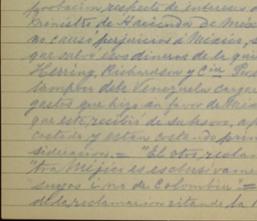 probacion, respecto de intereses o
ministro de Hacienda De Méx
no causó perjuicios á México, s
que salvó esos dineros de la qui
Herring, Richardson y Cia
tampoco debe Venezuela cargar
gastos que hizo en favor de Méx
que este, recibió de su
costado y estan costando
sideracion. = "El otro recla
"tra Méjico es esclusivamen
suyos i no de Colombia" =
de la reclamacion citando la